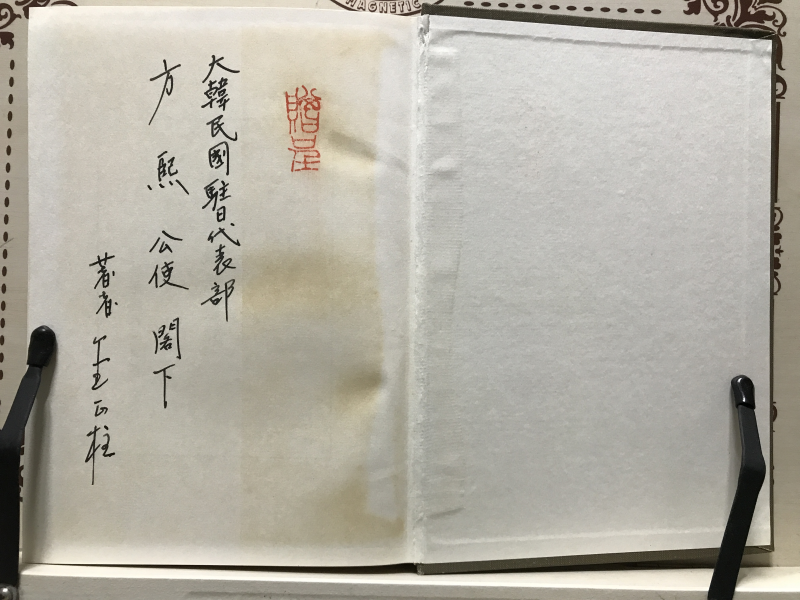 贈呈
大韓民國駐日代表部
方熙公使閣下
著者 金正柱
MAGNETIC